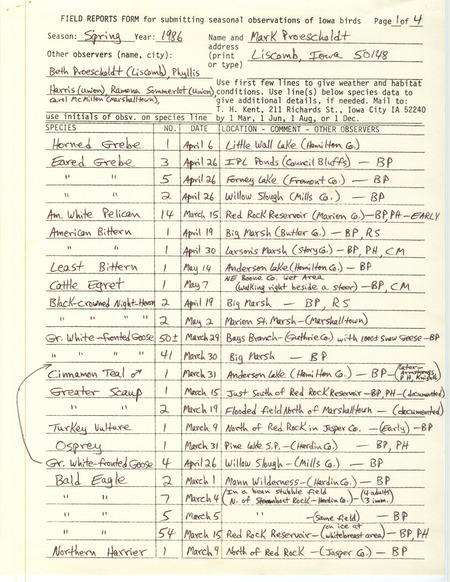 FIELD REPORTS FORM for submitting seasonal observations of Iowa birds Page 1 of 4
Season: Spring Year: 1986 Name and Mark Proescholdt
address
(print Liscomb, Iowa 50148
or type)
Other observers (name, city):
Beth Proescholdt (Liscomb), Phyllis
Harris (Union), Ramona Sommerlot (Union),
Carol McMillen (Marshalltown),
Use first few lines to give weather and habitat
conditions. Use line(s) below species data to
give additional details, if needed. Mail to:
T. H. Kent, 211 Richards St., Iowa City IA 52240
use initials of obsv. on species line by 1 Mar, 1 Jun, 1 Aug, or 1 Dec.
SPECIES NO. DATE LOCATION - COMMENT - OTHER OBSERVERS
Horned Grebe 1 April 6 Little Wall Lake (Hamilton Co.)
Eared Grebe 3 April 26 IPL Ponds (Council Bluffs) - BP
" " 5 April 26 Forney Lake (Fremont Co.) - BP
" " 2 April 26 Willow Slough (Mills Co.) - BP
Am. White Pelican 14 March 15 Red Rock Reservoir (Marion Co.) - BP, PH - EARLY
American Bittern 1 April 19 Big Marsh (Butler Co.) - BP, RS
" " 1 April 30 Larson's Marsh (Story Co.) - BP, PH, CM
Least Bittern 1 May 14 Anderson Lake (Hamilton Co.) - BP
Cattle Egret 1 May 7 NE Boone Co. wet area
(walking right beside a steer) - BP, CM
Black-crowned Night-Heron 2 April 19 Big Marsh - BP, RS
" " " " 2 May 2 Marion St. Marsh - (Marshalltown)
Gr. White-fronted Goose 50± March 29 Bays Branch - (Guthrie Co.) with 1000± Snow Geese - BP
" " " " 41 March 30 Big Marsh - BP
Cinnamon Teal ♂ 1 March 31 Anderson Lake (Hamilton Co.) - BP -
Greater Scaup 1 March 15 Just South of Red Rock Reservoir - BP, PH - (documented)
" " 2 March 19 Flooded field North of Marshalltown - (documented)
Turkey Vulture 1 March 9 North of Red Rock in Jasper Co. - (Early) - BP
Osprey 1 March 31 Pine Lake S.P. - (Hardin Co.) - BP, PH
Gr. White-fronted Goose 4 April 26 Willow Slough - (Mills Co.) - BP
Bald Eagle 2 March 1 Mann Wilderness - (Hardin Co.) - BP
" " 7 March 4 (In a bean stubble field
N. of Steamboat Rock - Hardin Co.) - (4 adults, 3 imm.)
" " 5 March 5 " " - (same field) - BP
" " 54 March 15 Red Rock Reservoir - (on ice at whitebreast area) - BP, PH
Northern Harrier 1 March 9 North of Red Rock - (Jasper Co.) - BP